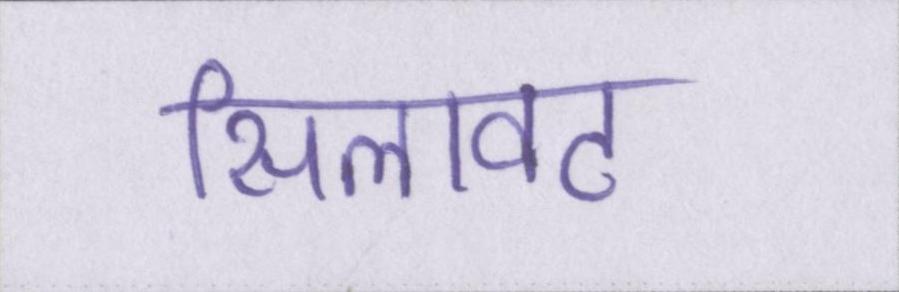 सिलावट